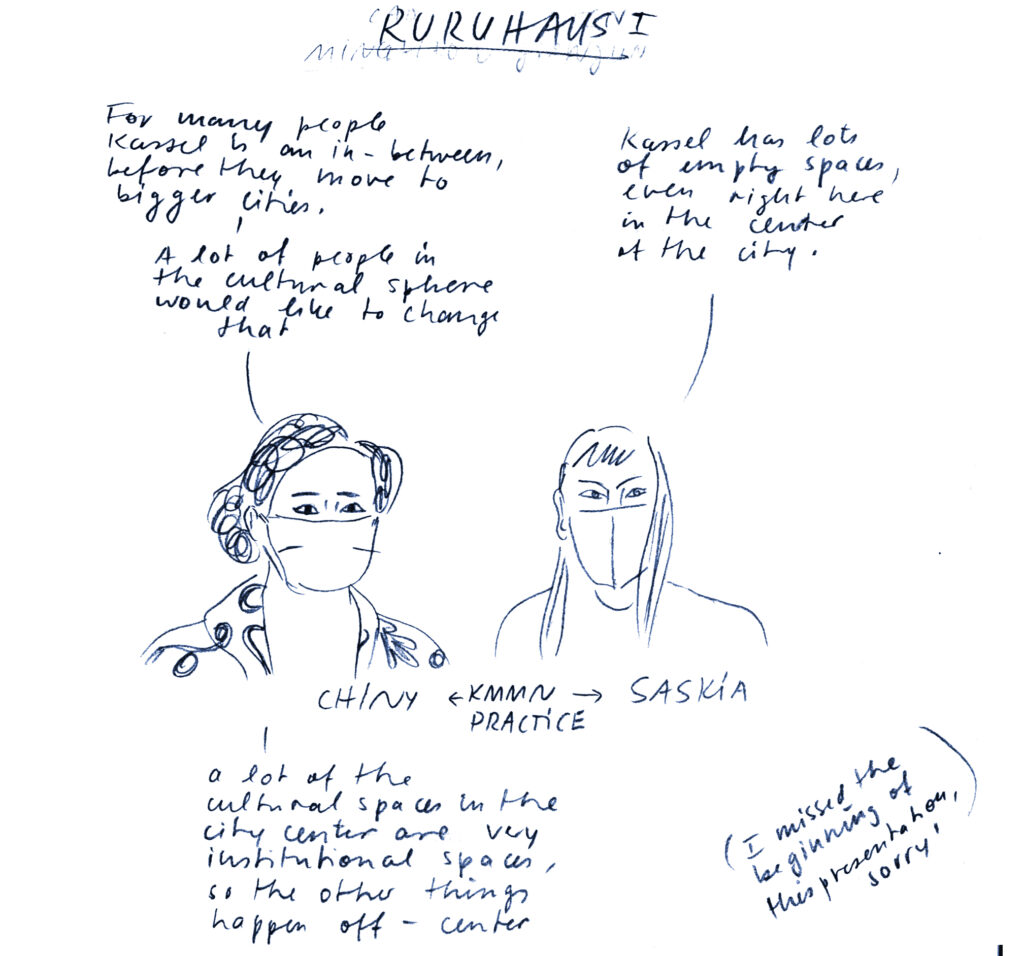 RURUHAUS I
For many people
Kassel is an in-between,
before they move to
bigger cities.
A lot of people in
the cultural sphere
would like to change
that
Kassel has lots
of empty spaces,
even right here
in the center
of the city.
CHINY ← KMMN → SASKIA
PRACTICE
a lot of the
cultural spaces in the
city center are very
institutional spaces,
so the other things
happen off-center
(I missed the
beginning of
this presentation,
sorry!